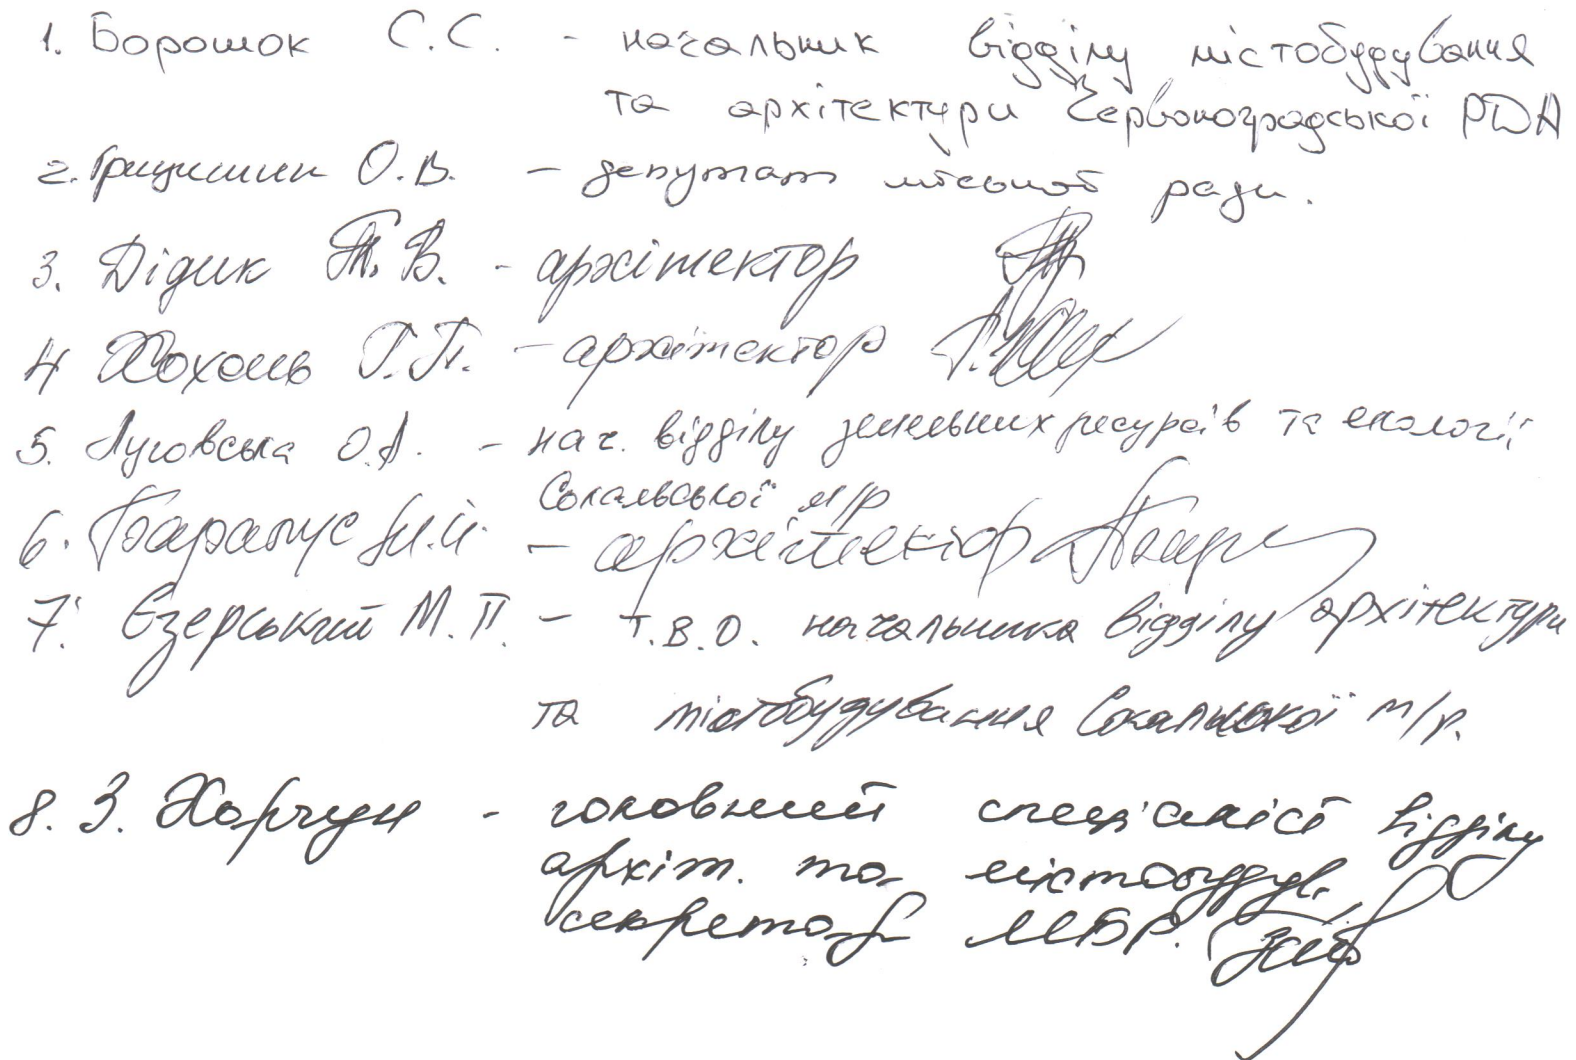 1. Борошок С.С. - начальник відділу містобудування
та архітектури Червоноградської РДА
2. Грицишин О.В. - депутат міської ради.
3. Дідик Т.В. - архітектор
4 Хохонь Г.П. - архітектор
5. Луговська О.А. - нач. відділу земельних ресурсів та екології
Сокальської м/р
6. М.Й. - архітектор
7. Єзерський М.П. - т.в.о. начальника відділу архітектури
та містобудування Сокальської м/р.
8. З. Хорчун - головний спеціаліст відділу
архіт. та містобудув,
секретар МБР.